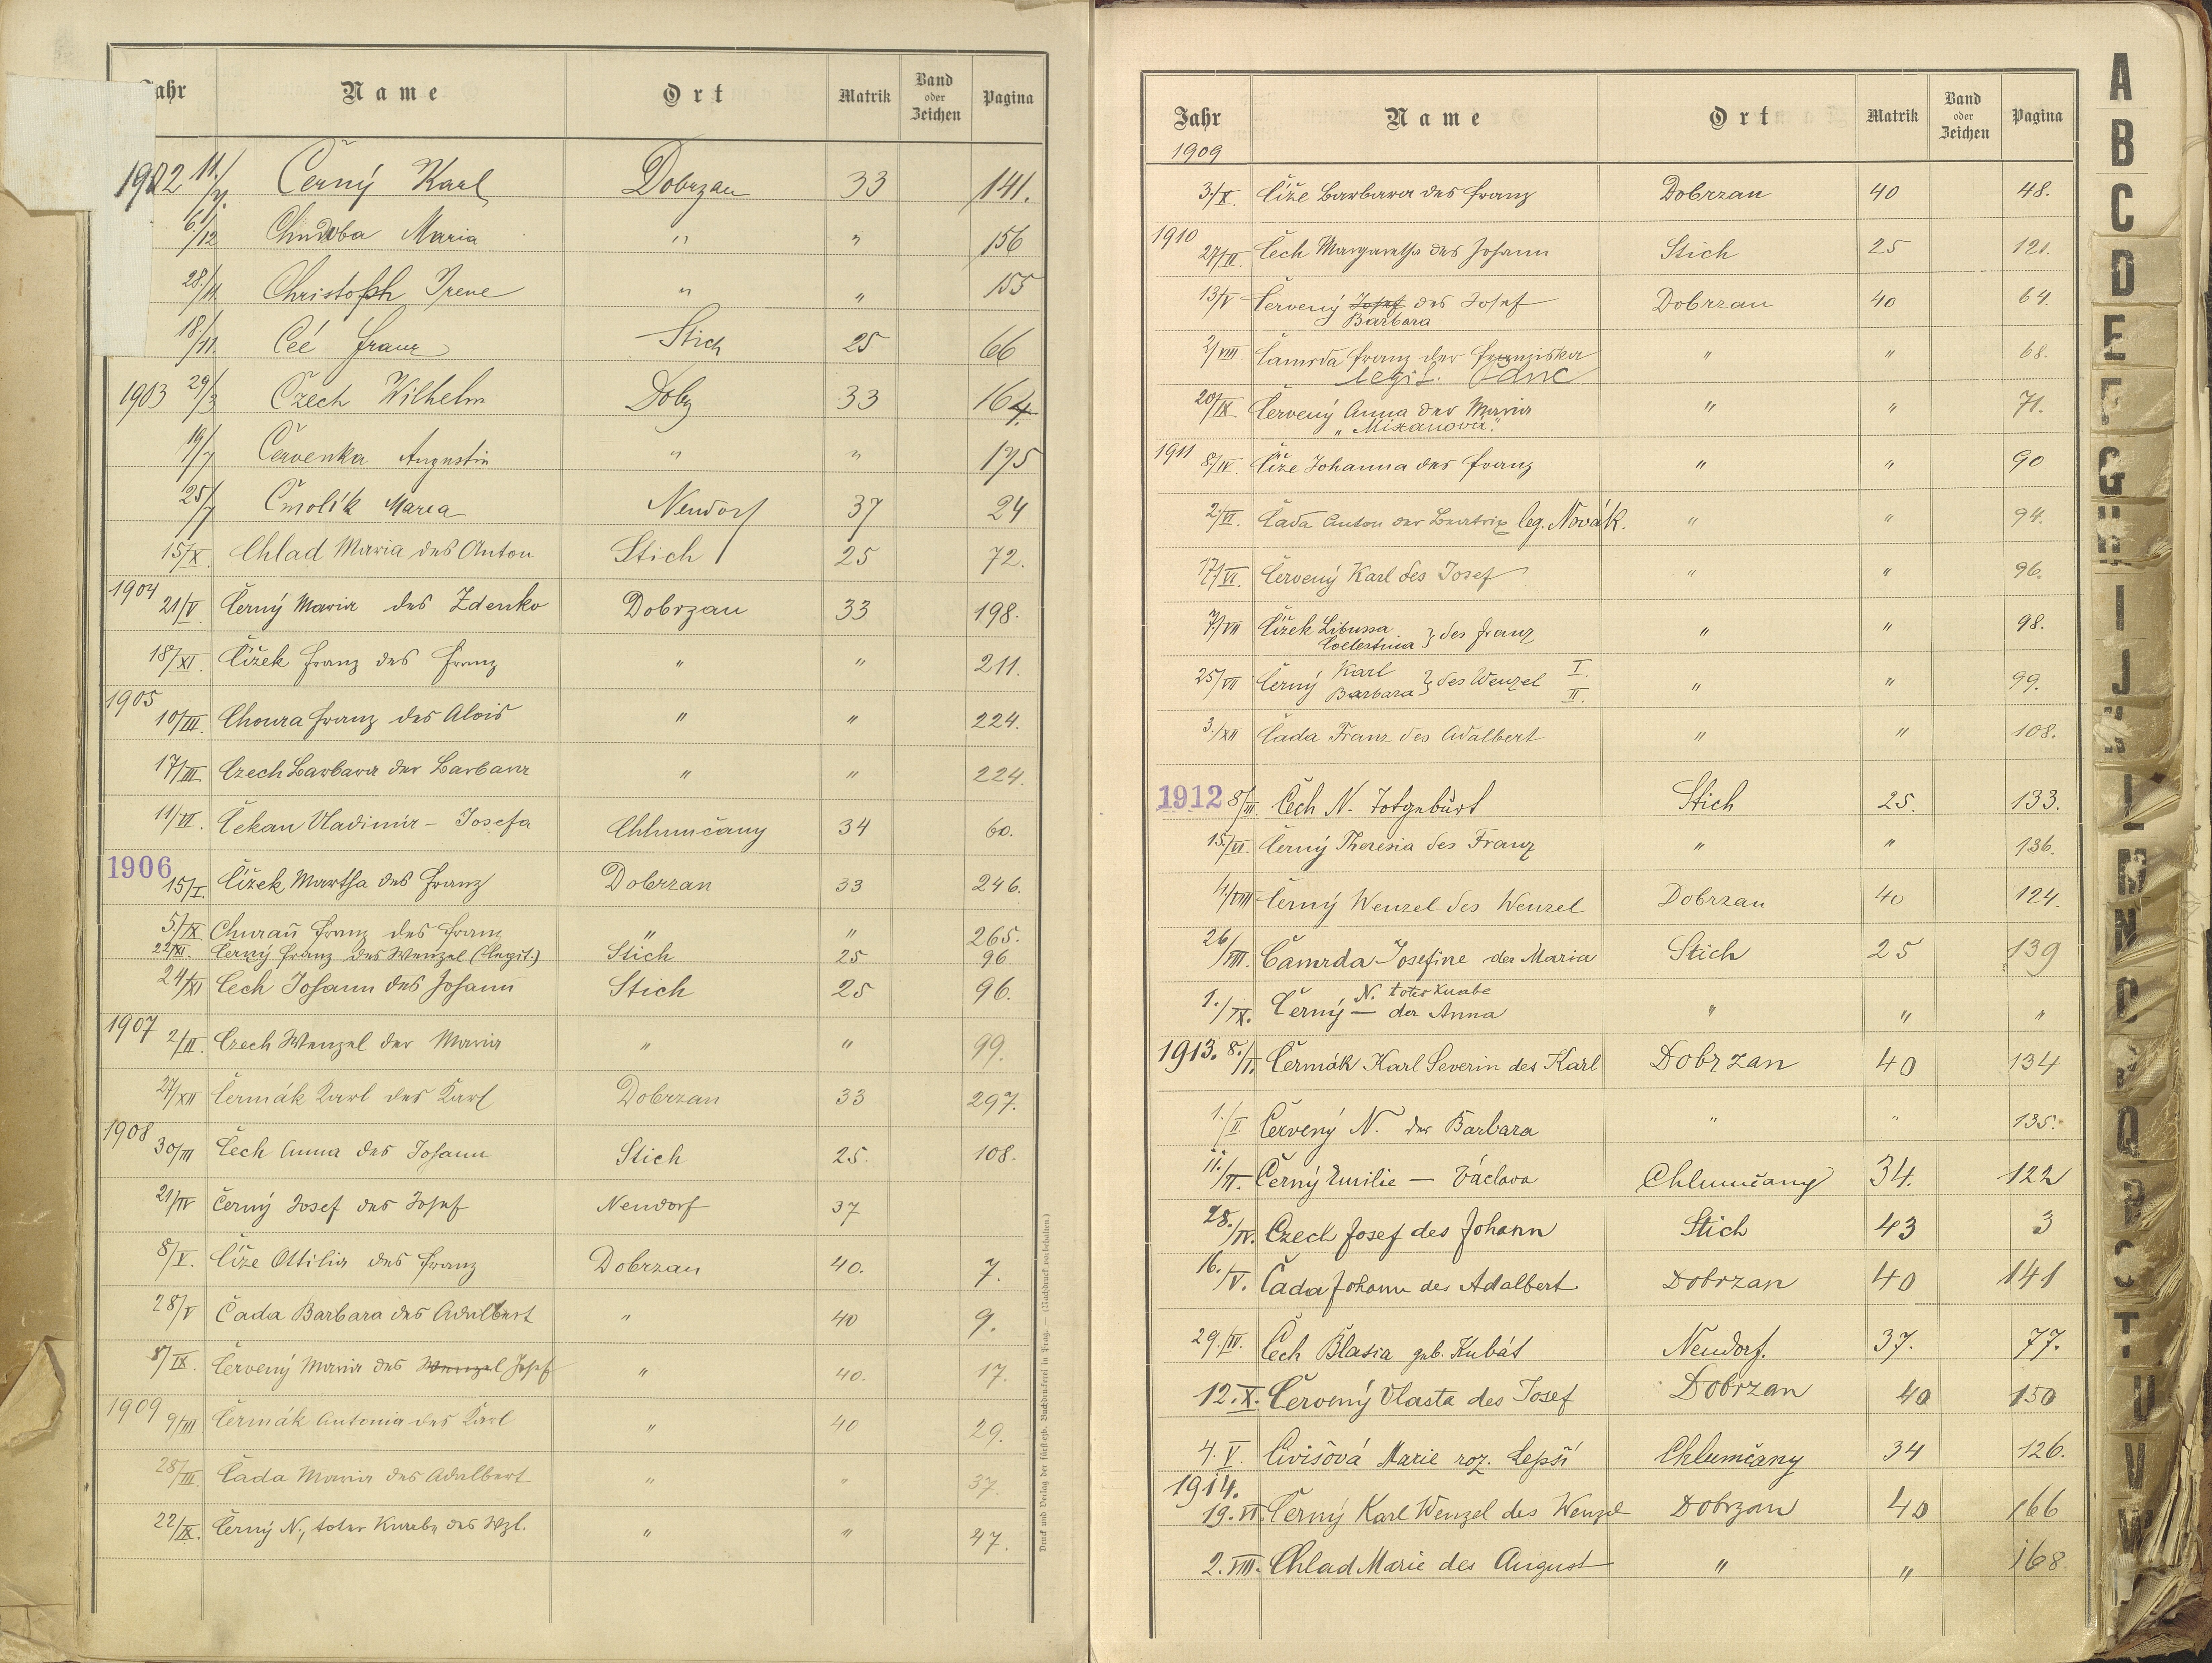 Jahr Name Ort Matrik Band oder Zeichen Pagina
1902 11./ Černý Karl Dobrzan 33 141.
6/12 Maria " " 156
28./11. Christoph Irene " " 155
18./11. Franz Stich 25 66
1903 29/3 Czech Wilhelm Dobrz 33 164.
19/7 Červenka Augustin " " 175
25/7 Čmolík Maria Neudorf 37 24
15/X. Chlad Maria des Anton Stich 25 72.
1904
21/V. Černý Maria des Zdenko Dobrzan 33 198.
18/XI. Čížek Franz des Franz " " 211.
1905
10/III. Choura Franz des Alois " " 224.
17/III. Czech Barbara der Barbara " " 224.
11/VI. Čekan Vladimír – Josefa Chlumčany 34 60.
1906
15/I. Čížek Martha des Franz Dobrzan 33 246.
5./IX. Churań Franz des Franz " " 265.
22/XI. Černý Franz des Wenzel (legit.) Stich 25 96
24/XI Čech Johann des Johann Stich 25 96.
1907
2/II. Czech Wenzel der Maria " " 99.
27/XII Čermák Karl des Karl Dobrzan 33 297.
1908
30/III Čech Anna des Johann Stich 25. 108.
21/IV Černý Josef des Josef Neudorf 37
8/V. Číže Ottilia des Franz Dobrzan 40. 7.
28/V Čada Barbara des Adalbert " 40 9.
8/IX. Červený Maria des Wenzel Josef " 40. 17.
1909 9/III Čermák Antonia des Karl " 40 29.
28/III. Čada Maria des Adalbert " " 37.
22/IX. Černý N., toter Knabe des Wzl. " " 47.
Druck und Verlag der fürsterzb. Buchdruckerei in Prag. — (Nachdruck vorbehalten.)
Jahr Name Ort Matrik Band oder Zeichen Pagina
1909
3./X. Číže Barbara des Franz Dobrzan 40 48.
1910
27/II. Čech Margaretha des Johann Stich 25 121.
13/V Červený Josef des Josef Dobrzan 40 64.
Barbara
2/VIII. Čamrda Franz der Franziska " " 68.
legit.
20/IX. Červený Anna der Maria " " 71.
"Mixanova."
1911 8/IV. Číže Johanna des Franz " " 90
2./VI. Čada Anton der Beatrix leg. Novák. " " 94.
17/VI. Červený Karl des Josef " " 96.
7./VII Čížek Libussa
Coelestina } des Franz " " 98.
25/VII Černý Karl I.
Barbara } des Wenzel II. " " 99.
3./XII Čada Franz des Adalbert " " 108.
1912 8/III Čech N. Totgeburt Stich 25. 133.
15./VI. Černý Theresia des Franz " " 136.
4/VIII Černý Wenzel des Wenzel Dobrzan 40 124.
26/VIII. Čamrda Josefine der Maria Stich 25 139
N. toter Knabe
1./IX. Černý — der Anna " " "
1913. 8./I. Čermák Karl Severin des Karl Dobrzan 40 134
1./II. Červený N. der Barbara " " 135.
11./II. Černý Emilie — Václava Chlumčany 34. 122
28./IV. Czech Josef des Johann Stich 43 3
16./V. Čada Johann des Adalbert Dobrzan 40 141
29./IV. Čech Blasia geb. Kubát Neudorf. 37. 77.
12. X. Červený Vlasta des Josef Dobrzan 40 150
4. V. Civišová Marie roz. Lepší Chlumčany 34 126.
1914.
19. VI. Černý Karl Wenzel des Wenzel Dobrzan 40 166
2. VIII. Chlad Marie des August " " 168
A
B
C
D
E
F
G
H
I
J
K
L
M
N
O
P
Q
R
S
T
U
V
W